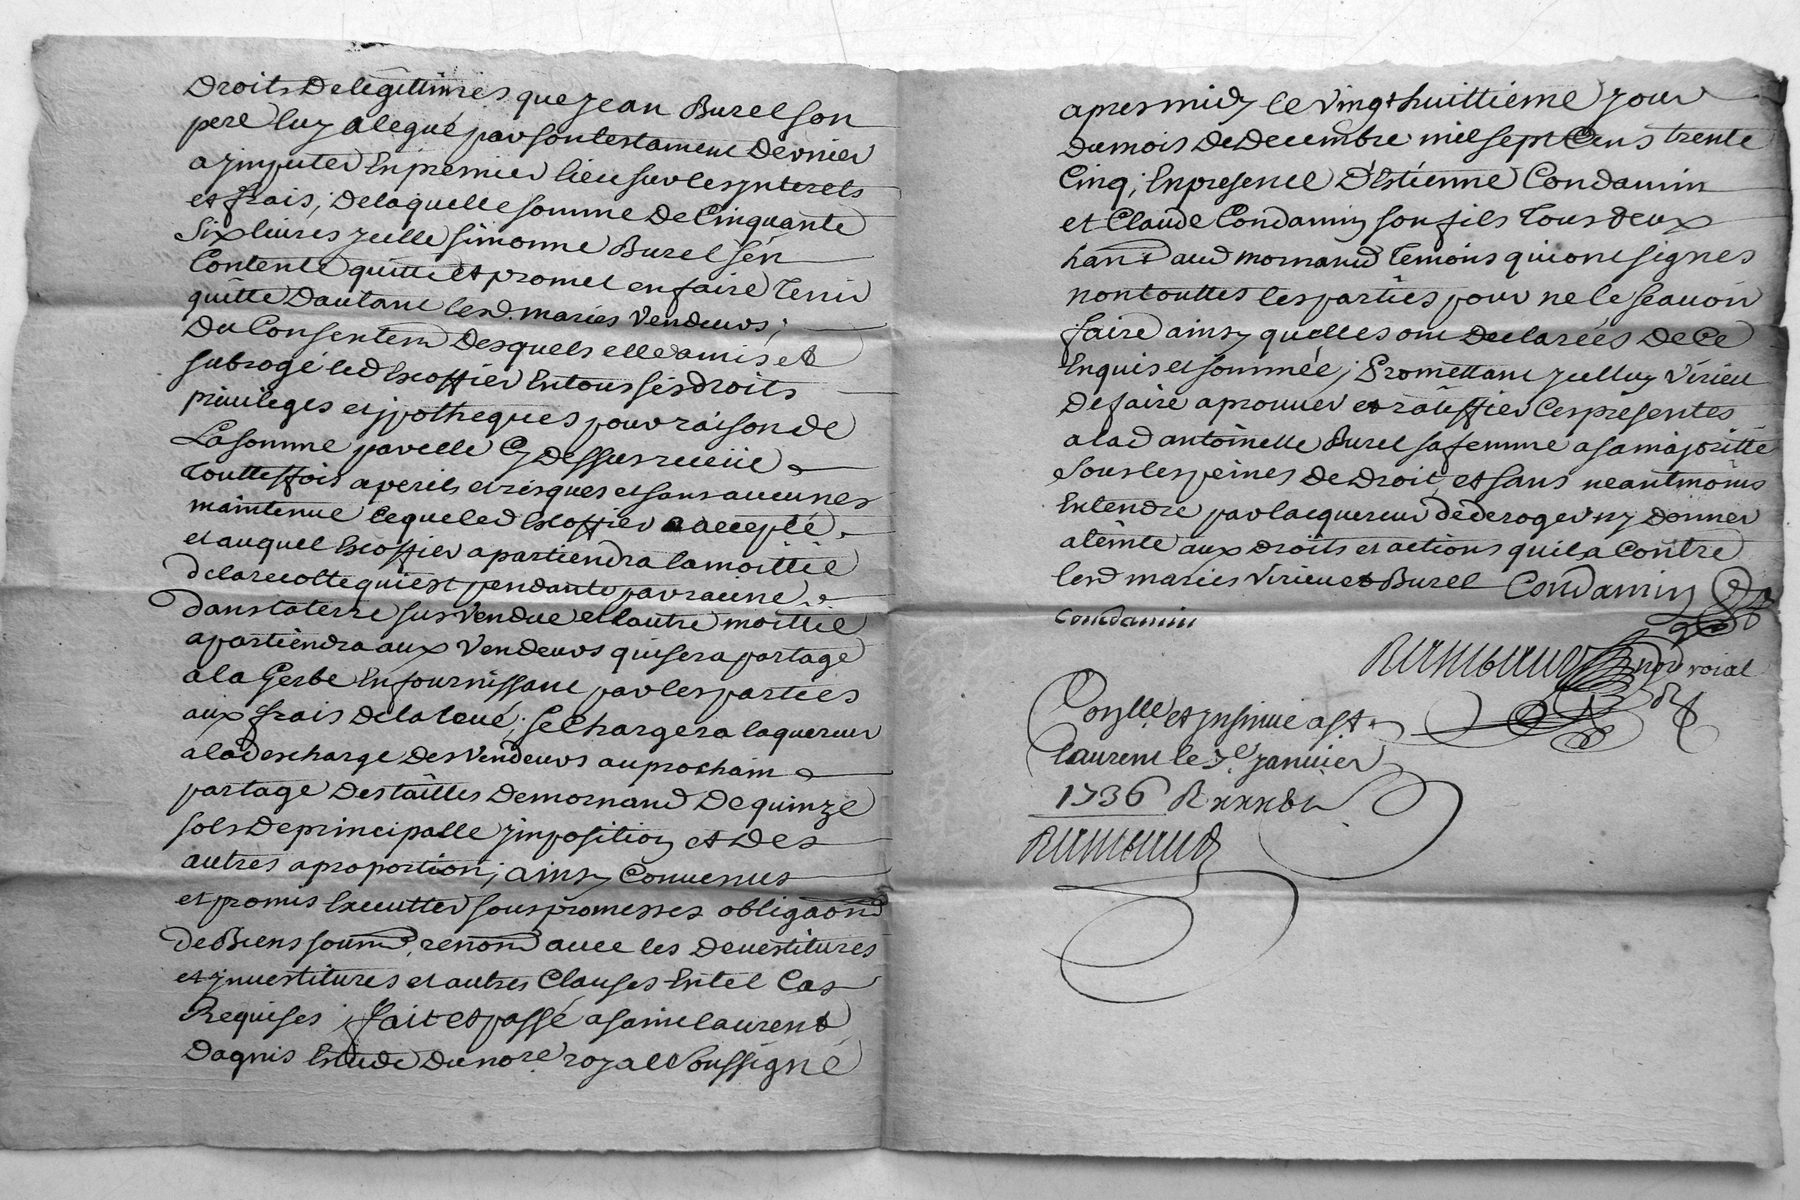 Droits De legittimes que Jean Burel son
pere luy a legué par son testament Dernier
a Jmputer En premier lieu sur les Jnterets
et frais, De laquelle somme De Cinquante
Six livres Jcelle simonne Burel sén
Contente quitte et promet en faire Tenir
quitte Dautant lesd. mariés Vendeurs;
Du Consentem Desquels elle a mis et
subrogé led Escoffier En tous ses droits
privileges et jpotheques pour raison de
La somme par elle Cy Dessus receüe
Touttesfois a perils et risques et sans aucunes
maintenue Ceque led Escoffier a accepté.
et auquel Escoffier apartiendra la moittié
de la recolte qui est pendante par racine
dans la terre sus Vendue et l'autre moittié
apartiendra aux Vendeurs qui sera partagé
a la Gerbe En fournissant par les parties
aux frais de la leué; se Chargera laquereur
a la descharge Des Vendeurs au prochain
partage Des tailles De mornand De quinze
sols De principalle Jmposition et Des
autres a proportion; ainsy Convenus
et promis Executter sous promesses obligaons
de Biens soum. renon avec les Devestitures
et jnvestitures et autres Clauses En tel Cas
Requises; fait et passé a saint laurent
Dagnis Estude Du nore. royal Soussigné
apres midy le Vingt huittieme Jour
Du mois De Decembre mil sept Cens trente
Cinq; En presence D'Estienne Condamin
et Claude Condamin son fils Tous deux
han t aud mornand Temoins qui ont signés
non touttes les parties pour ne le scavoir
faire ainsy quelles ont Declarées De Ce
Enquis et sommée; Promettant Jcelluy Virieu
De faire aprouver et ratiffier Ces presentes
a lad antoinette Burel sa femme a sa majoritté
Sous les peines De Droit, et sans neantmoins
Entendre par lacquereur de deroger ny Donner
ateinte aux Droits et actions quil a Contre
lesd mariés Virieu et Burel Condamin
Condamin
nore roial
Conlle. et Jnsinué a St
laurent le 7e Janvier
1736 R